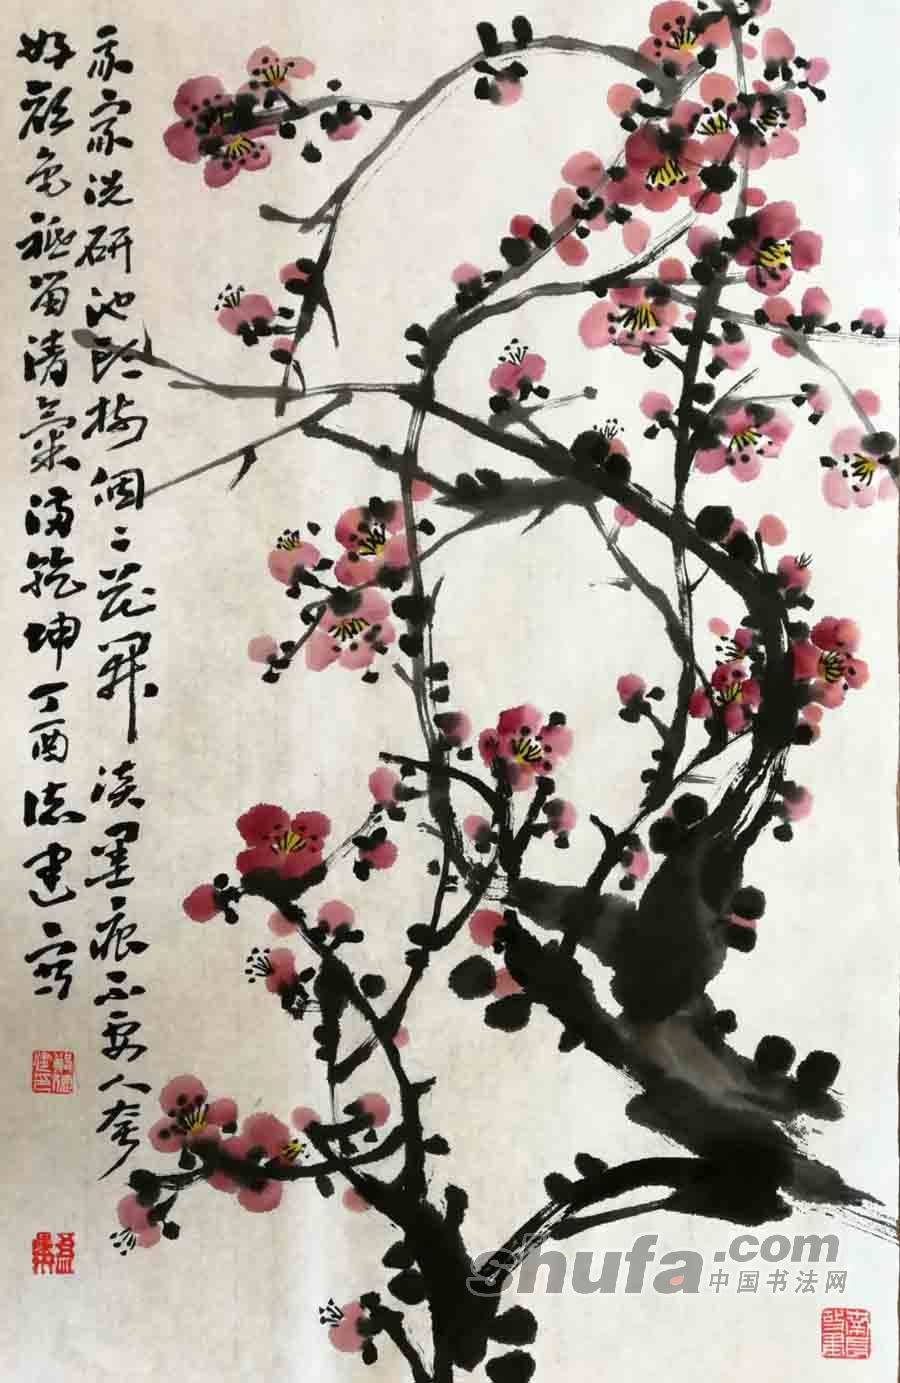 我家洗研池头树个々花开淡墨痕不要人夸
好颜色祗留清氣满乾坤丁酉志建写
shufa.com
中国书法网